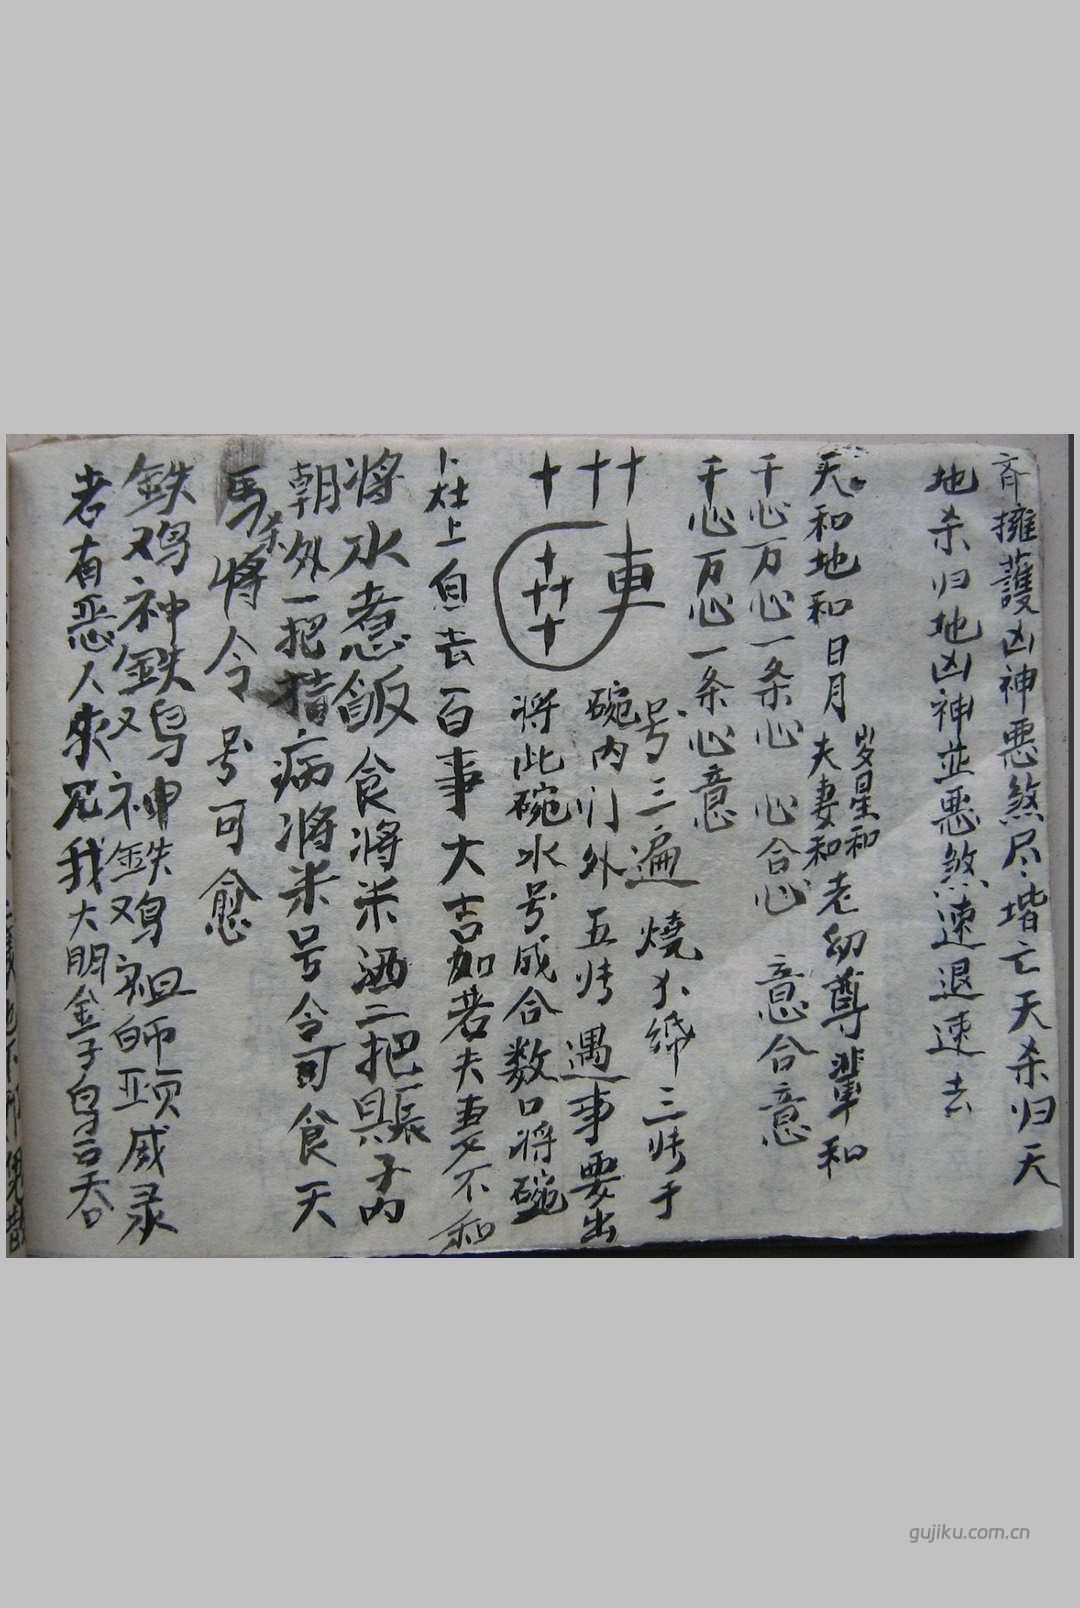 斉擁護凶神悪煞尽皆亡天杀归天
地杀归地凶神並悪煞速退速去
天和地和日月
岁星和
夫妻和
老幼尊輩和
千心万心一条心 心合心 意合意
千心万心一条心意
車
号三遍 燒 三 于
碗内门外五 遇事要出
将此碗水号咸合数口将碗
灶上自去百事大吉如若夫妻不和
将水煮飯食将米洒三把 子内
朝外一把 病将米号令可食天
馬将令号可愈
杀
鉄鸡神鉄鸡神鉄鸡祖師 威录
若有恶人來 我大朋金子鸟舌吞
gujiku.com.cn